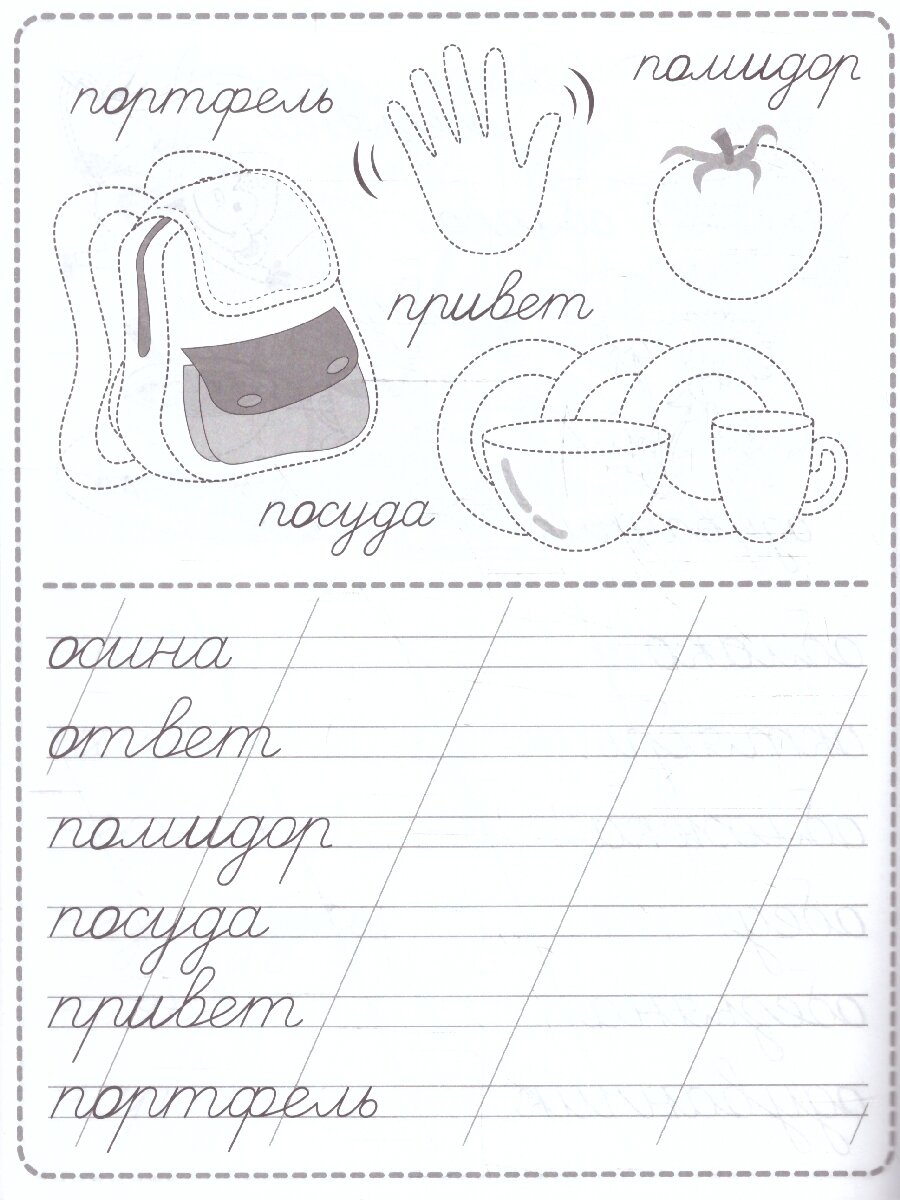 портфель
помидор
привет
посуда
осина
ответ
помидор
посуда
привет
портфель